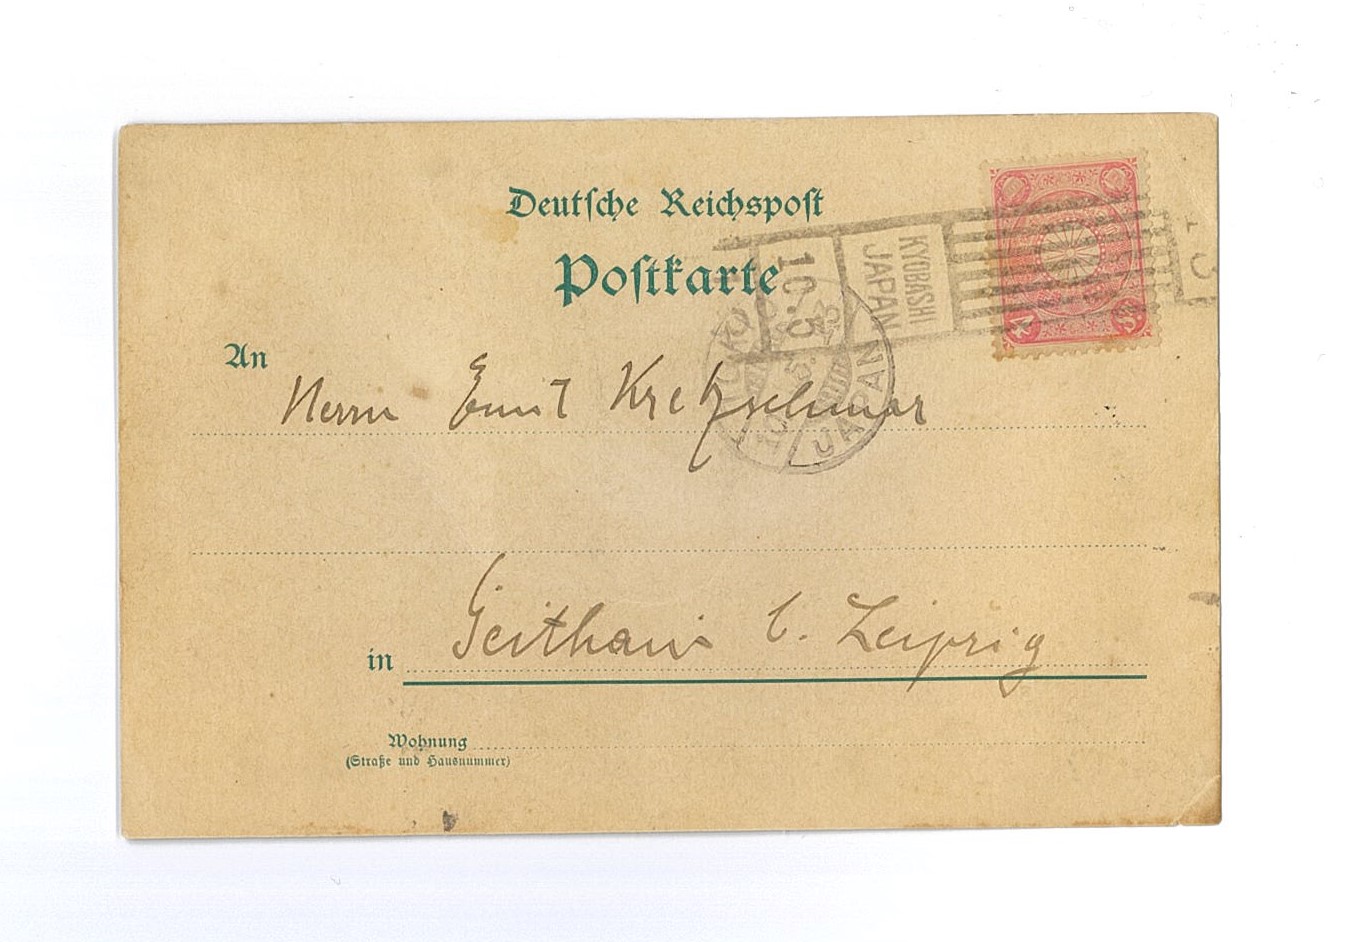 Deutsche Reichspost
Postkarte
KYOBASHI
JAPAN
10.5
4 S
JAPAN
An
Herrn Emil Kretzschmar
in Geithain b. Leipzig
Wohnung
(Straße und Hausnummer)